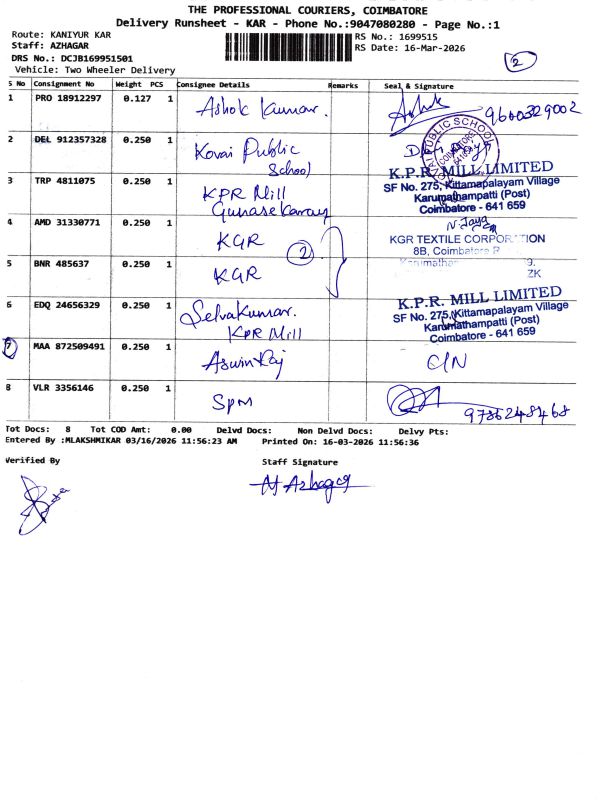 THE PROFESSIONAL COURIERS, COIMBATORE
Delivery Runsheet - KAR - Phone No.:9047080280 - Page No.:1
Route: KANIYUR KAR
RS No.: 1699515
Staff: AZHAGAR
RS Date: 16-Mar-2026
DRS No.: DCJB169951501
2
Vehicle: Two Wheeler Delivery
S No Consignment No Weight PCS Consignee Details Remarks Seal & Signature
1 PRO 18912297 0.127 1 Ashok Kumar. Ashok 9600329002
2 DEL 912357328 0.250 1 Kovai Public School
KOVAI PUBLIC SCHOOL
3 TRP 4811075 0.250 1 KPR Mill
K.P.R. MILL LIMITED
SF No. 275, Kittamapalayam Village
Karumathampatti (Post)
Coimbatore - 641 659
4 AMD 31330771 0.250 1 KGR 2
KGR TEXTILE CORPORATION
8B, Coimbatore R
5 BNR 485637 0.250 1 KGR
ZK
6 EDQ 24656329 0.250 1 Selvakumar.
KPR Mill
K.P.R. MILL LIMITED
SF No. 275, Kittamapalayam Village
Karumathampatti (Post)
Coimbatore - 641 659
7 MAA 872509491 0.250 1 Aswin Raj C/N
8 VLR 3356146 0.250 1 SPM
Tot Docs: 8 Tot COD Amt: 0.00 Delvd Docs: Non Delvd Docs: Delvy Pts:
Entered By :MLAKSHMIKAR 03/16/2026 11:56:23 AM Printed On: 16-03-2026 11:56:36
Verified By
Staff Signature